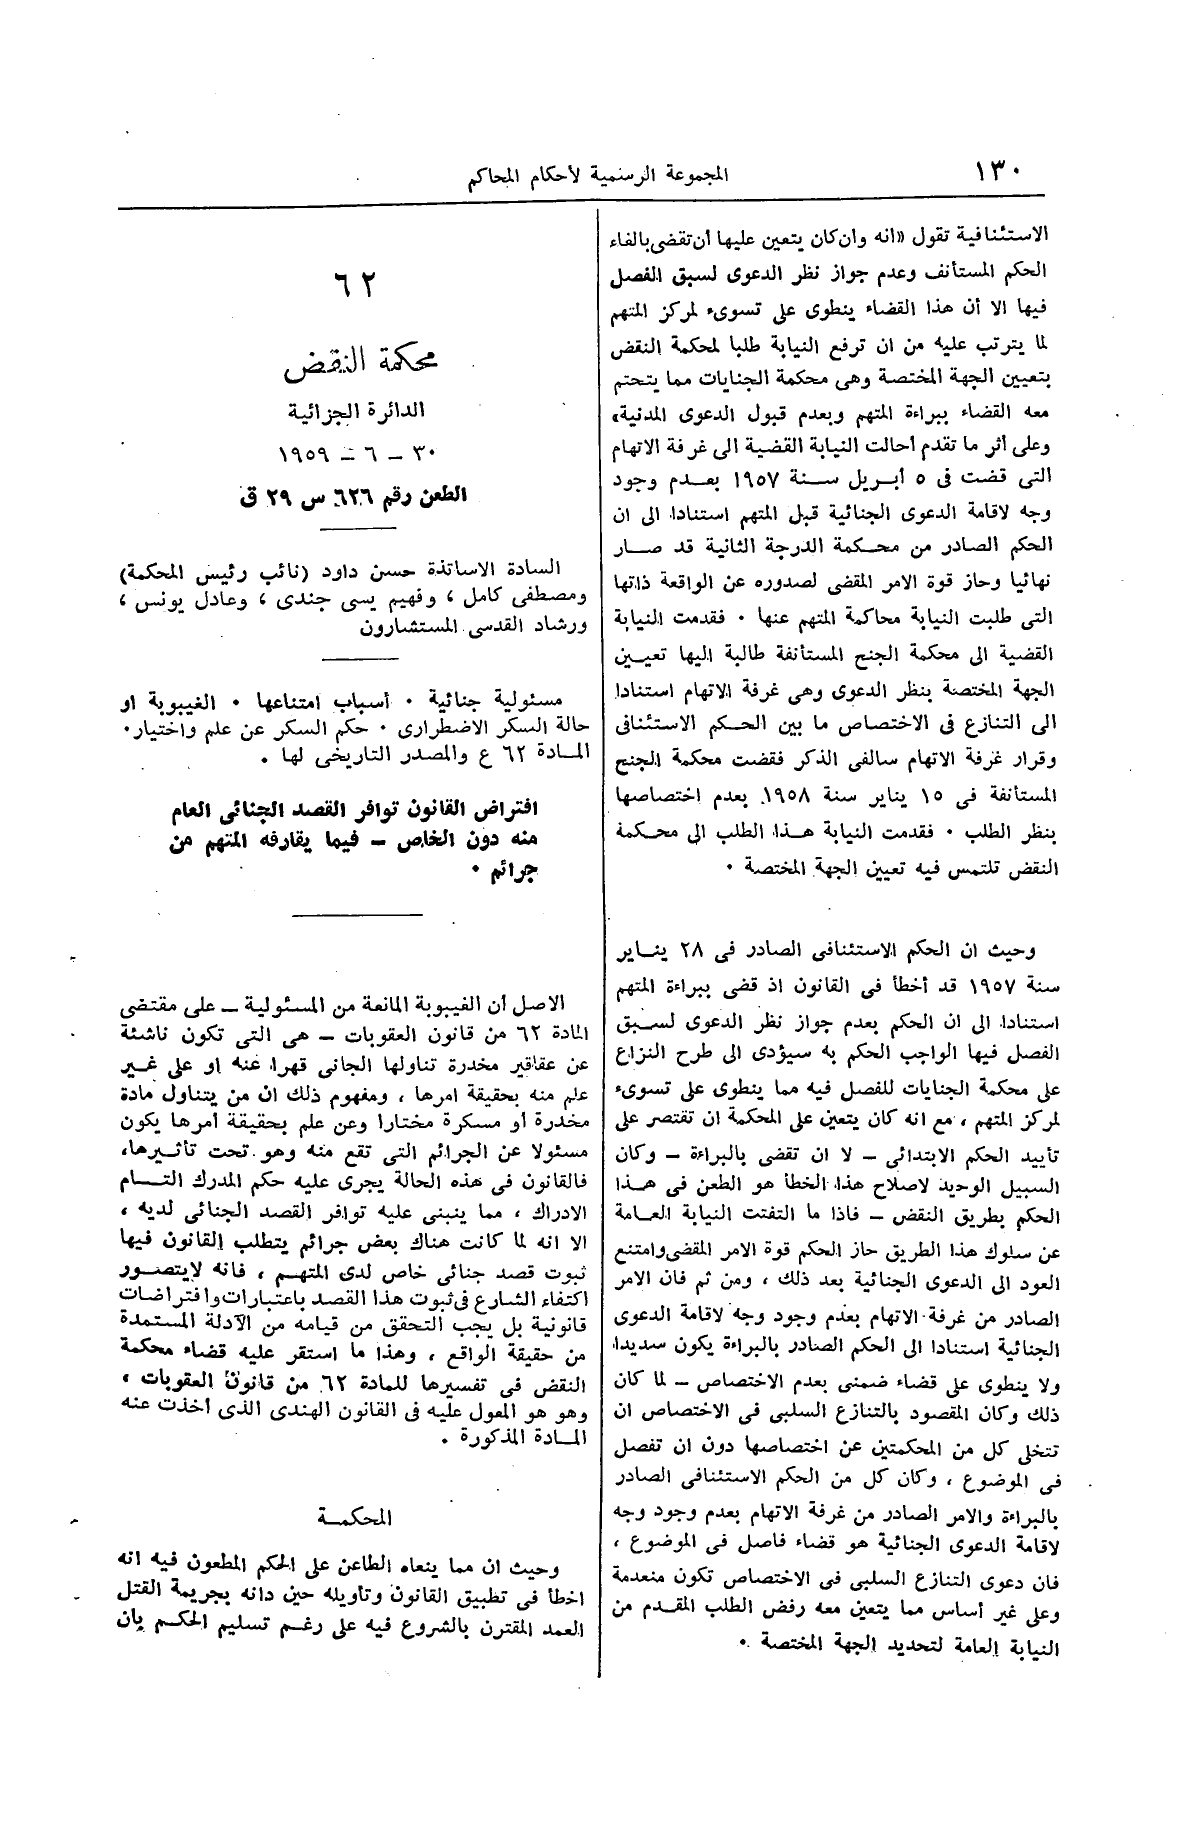 ١٣٠
المجموعة الرسمية لأحكام المحاكم
الاستئنافية تقول «انه وان كان يتعين عليها أن تقضى بالغاء
الحكم المستأنف وعدم جواز نظر الدعوى لسبق الفصل
فيها الا أن هذا القضاء ينطوى على تسوىء لمركز المتهم
لما يترتب عليه من ان ترفع النيابة طلبا لمحكمة النقض
بتعيين الجهة المختصة وهى محكمة الجنايات مما يتحتم
معه القضاء ببراءة المتهم وبعدم قبول الدعوى المدنية»
وعلى أثر ما تقدم أحالت النيابة القضية الى غرفة الاتهام
التى قضت فى ٥ أبريل سنة ١٩٥٧ بعدم وجود
وجه لاقامة الدعوى الجنائية قبل المتهم استنادا الى ان
الحكم الصادر من محكمة الدرجة الثانية قد صار
نهائيا وحاز قوة الامر المقضى لصدوره عن الواقعة ذاتها
التى طلبت النيابة محاكمة المتهم عنها ٠ فقدمت النيابة
القضية الى محكمة الجنح المستأنفة طالبة اليها تعيين
الجهة المختصة بنظر الدعوى وهى غرفة الاتهام استنادا
الى التنازع فى الاختصاص ما بين الحكم الاستئنافى
وقرار غرفة الاتهام سالفى الذكر فقضت محكمة الجنح
المستأنفة فى ١٥ يناير سنة ١٩٥٨ بعدم اختصاصها
بنظر الطلب ٠ فقدمت النيابة هذا الطلب الى محكمة
النقض تلتمس فيه تعيين الجهة المختصة ٠
وحيث ان الحكم الاستئنافى الصادر فى ٢٨ يناير
سنة ١٩٥٧ قد أخطأ فى القانون اذ قضى ببراءة المتهم
استنادا الى ان الحكم بعدم جواز نظر الدعوى لسبق
الفصل فيها الواجب الحكم به سيؤدى الى طرح النزاع
على محكمة الجنايات للفصل فيه مما ينطوى على تسوىء
لمركز المتهم ، مع انه كان يتعين على المحكمة ان تقتصر على
تأييد الحكم الابتدائى – لا ان تقضى بالبراءة – وكان
السبيل الوحيد لاصلاح هذا الخطأ هو الطعن فى هذا
الحكم بطريق النقض – فاذا ما التفتت النيابة العامة
عن سلوك هذا الطريق حاز الحكم قوة الامر المقضى وامتنع
العود الى الدعوى الجنائية بعد ذلك ، ومن ثم فان الامر
الصادر من غرفة الاتهام بعدم وجود وجه لاقامة الدعوى
الجنائية استنادا الى الحكم الصادر بالبراءة يكون سديدا
ولا ينطوى على قضاء ضمنى بعدم الاختصاص – لما كان
ذلك وكان المقصود بالتنازع السلبى فى الاختصاص ان
تتخلى كل من المحكمتين عن اختصاصها دون ان تفصل
فى الموضوع ، وكان كل من الحكم الاستئنافى الصادر
بالبراءة والامر الصادر من غرفة الاتهام بعدم وجود وجه
لاقامة الدعوى الجنائية هو قضاء فاصل فى الموضوع ،
فان دعوى التنازع السلبى فى الاختصاص تكون منعدمة
وعلى غير أساس مما يتعين معه رفض الطلب المقدم من
النيابة العامة لتحديد الجهة المختصة ٠
٦٢
محكمة النقض
الدائرة الجزائية
٣٠ – ٦ – ١٩٥٩
الطعن رقم ٦٢٦ س ٢٩ ق
السادة الاساتذة حسن داود (نائب رئيس المحكمة)
ومصطفى كامل ، وفهيم يسى جندى ، وعادل يونس ،
ورشاد القدسى المستشارون
مسئولية جنائية ٠ أسباب امتناعها ٠ الغيبوبة او
حالة السكر الاضطرارى ٠ حكم السكر عن علم واختيار٠
المادة ٦٢ ع والمصدر التاريخى لها ٠
افتراض القانون توافر القصد الجنائى العام
منه دون الخاص – فيما يقارفه المتهم من
جرائم ٠
الاصل أن الغيبوبة المانعة من المسئولية – على مقتضى
المادة ٦٢ من قانون العقوبات – هى التى تكون ناشئة
عن عقاقير مخدرة تناولها الجانى قهرا عنه او على غير
علم منه بحقيقة امرها ، ومفهوم ذلك ان من يتناول مادة
مخدرة أو مسكرة مختارا وعن علم بحقيقة أمرها يكون
مسئولا عن الجرائم التى تقع منه وهو تحت تأثيرها،
فالقانون فى هذه الحالة يجرى عليه حكم المدرك التام
الادراك ، مما ينبنى عليه توافر القصد الجنائى لديه ،
الا انه لما كانت هناك بعض جرائم يتطلب القانون فيها
ثبوت قصد جنائى خاص لدى المتهم ، فانه لايتصور
اكتفاء الشارع فى ثبوت هذا القصد باعتبارات وافتراضات
قانونية بل يجب التحقق من قيامه من الأدلة المستمدة
من حقيقة الواقع ، وهذا ما استقر عليه قضاء محكمة
النقض فى تفسيرها للمادة ٦٢ من قانون العقوبات ،
وهو هو المعول عليه فى القانون الهندى الذى أخذت عنه
المادة المذكورة ٠
المحكمة
وحيث ان مما ينعاه الطاعن على الحكم المطعون فيه انه
اخطأ فى تطبيق القانون وتأويله حين دانه بجريمة القتل
العمد المقترن بالشروع فيه على رغم تسليم الحكم بان